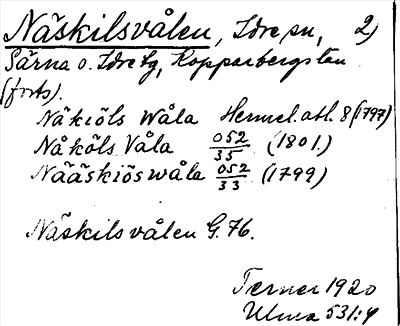 Näskilsvålen, Idre sn, 2)
Särna o. Idre tg, Kopparbergs län
(forts).
Näkiöls Wåla Hermel. atl. 8 (1797)
Nåköls Våla 052/35 (1801)
Nääskiöswåla 052/33 (1799)
Näskilsvålen G. 76.
Terner 1920
Ulma 531:4